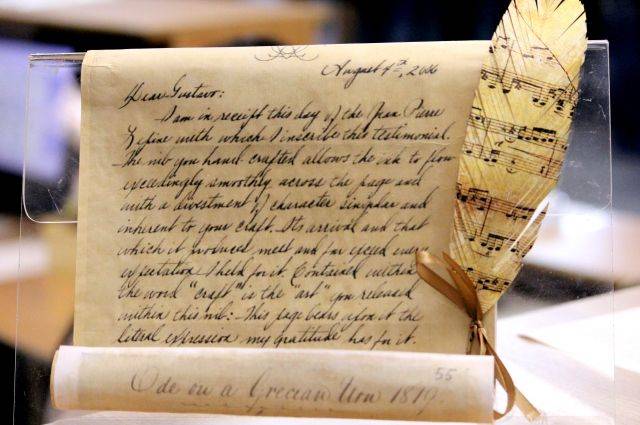 August 4th, 2006
Dear Gustavo:
I am in receipt this day of the Jean Pierre
Lépine with which I inscribe this testimonial.
The nib you hand crafted allows the ink to flow
exceedingly smoothly across the page and
with a divestment of character singular and
inherent to your craft. Its arrival and that
which it produced, meet and far exceed every
expectation I held for it. Contained within
the word "craft" is the "art" you released
within this nib:- This page bears upon it the
literal expression my gratitude has for it.
55
Ode on a Grecian Urn 1819.